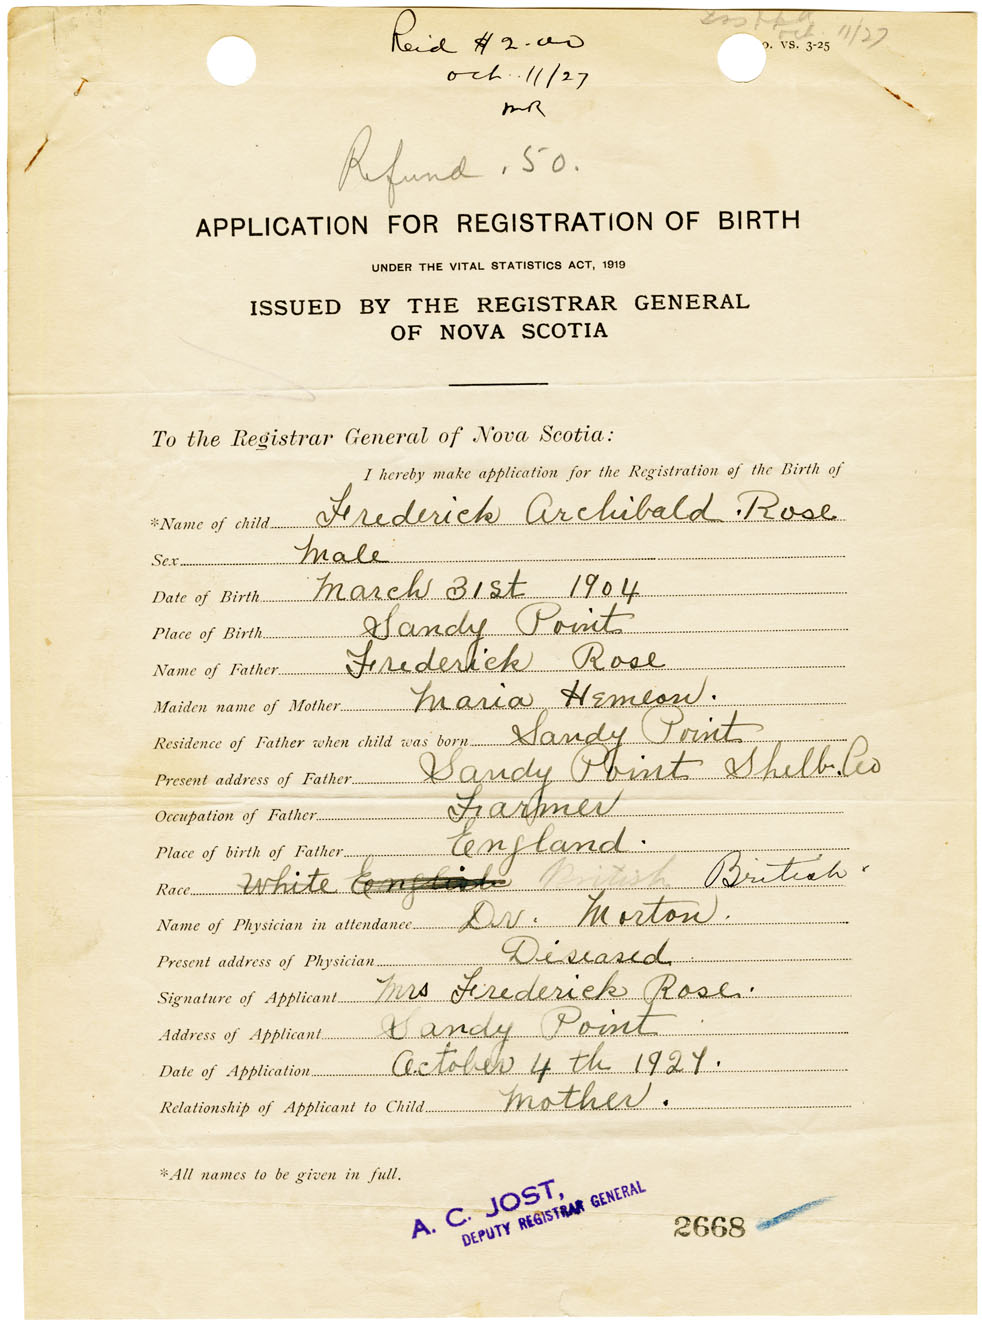 Oct 11/27
o. VS. 3-25
Reid $2.00
Oct. 11/27
MR
Refund .50.
APPLICATION FOR REGISTRATION OF BIRTH
UNDER THE VITAL STATISTICS ACT, 1919
ISSUED BY THE REGISTRAR GENERAL
OF NOVA SCOTIA
To the Registrar General of Nova Scotia:
I hereby make application for the Registration of the Birth of
*Name of child Frederick Archibald Rose
Sex Male
Date of Birth March 31st 1904
Place of Birth Sandy Point
Name of Father Frederick Rose
Maiden name of Mother Maria Hemeon.
Residence of Father when child was born Sandy Point
Present address of Father Sandy Point Shelb. Co
Occupation of Father Farmer
Place of birth of Father England.
Race White English British British
Name of Physician in attendance Dr. Morton.
Present address of Physician Diseased.
Signature of Applicant Mrs Frederick Rose.
Address of Applicant Sandy Point
Date of Application October 4th 1927.
Relationship of Applicant to Child Mother.
*All names to be given in full.
A. C. JOST,
DEPUTY REGISTRAR GENERAL
2668